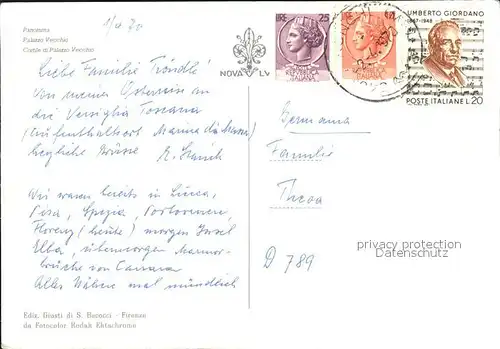 Panorama
Palazzo Vecchio
Cortile di Palazzo Vecchio
1/4 70
NOVA LV
LIRE 25
REPUBBLICA ITALIANA
ITALIANA
UMBERTO GIORDANO
1867 - 1948
POSTE ITALIANE L.20
Liebe Familie Tröndle!
Von meiner Osterreise an
die Versiglia Toscana
(Aufenthaltsort Marina di Massa)
herzliche Grüsse
Wir waren bereits in Lucca,
Pisa, Spezia, Portovenere,
Florenz (heute) morgen Insel
Elba, übermorgen Marmor-
brüche von Carrara
Alles Nähere mal mündlich
Germania
Familie
Thea
D 789
privacy protection
Datenschutz
Ediz. Giusti di S. Becocci - Firenze
da Fotocolor Kodak Ektachrome